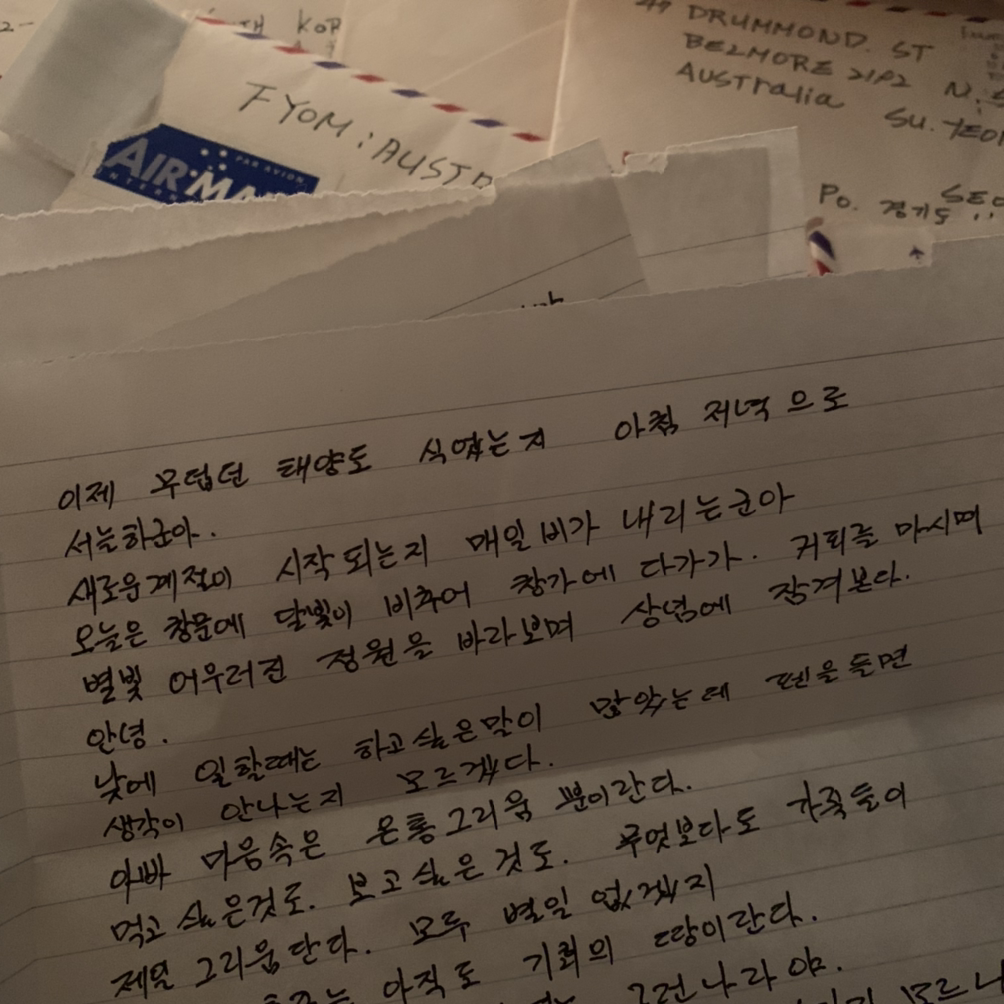 KOR
FYOM: AUSTR
AIR MA
PAR AVION
DRUMMOND. ST
BELMORE 21P2 N.
AUSTRALIA
SU. YEO
SEO
Po. 경기도
이제 무덥던 태양도 식었는지 아침 저녁으로
서늘하군아.
새로운계절이 시작되는지 매일비가 내리는군아
오늘은 창문에 달빛이 비추어 창가에 다가가. 커피를 마시며
별빛 어우러진 정원을 바라보며 상념에 잠겨본다.
안녕.
낮에 일할때는 하고싶은말이 많았는데 펜을들면
생각이 안나는지 모르겠다.
아빠 마음속은 온통그리움 뿐이란다.
먹고싶은것도. 보고싶은것도. 무엇보다도 가족들이
제일 그리웁단다. 모두 별일 없겠지
아직도 기회의 땅이란다.
그런나라야.
모르니